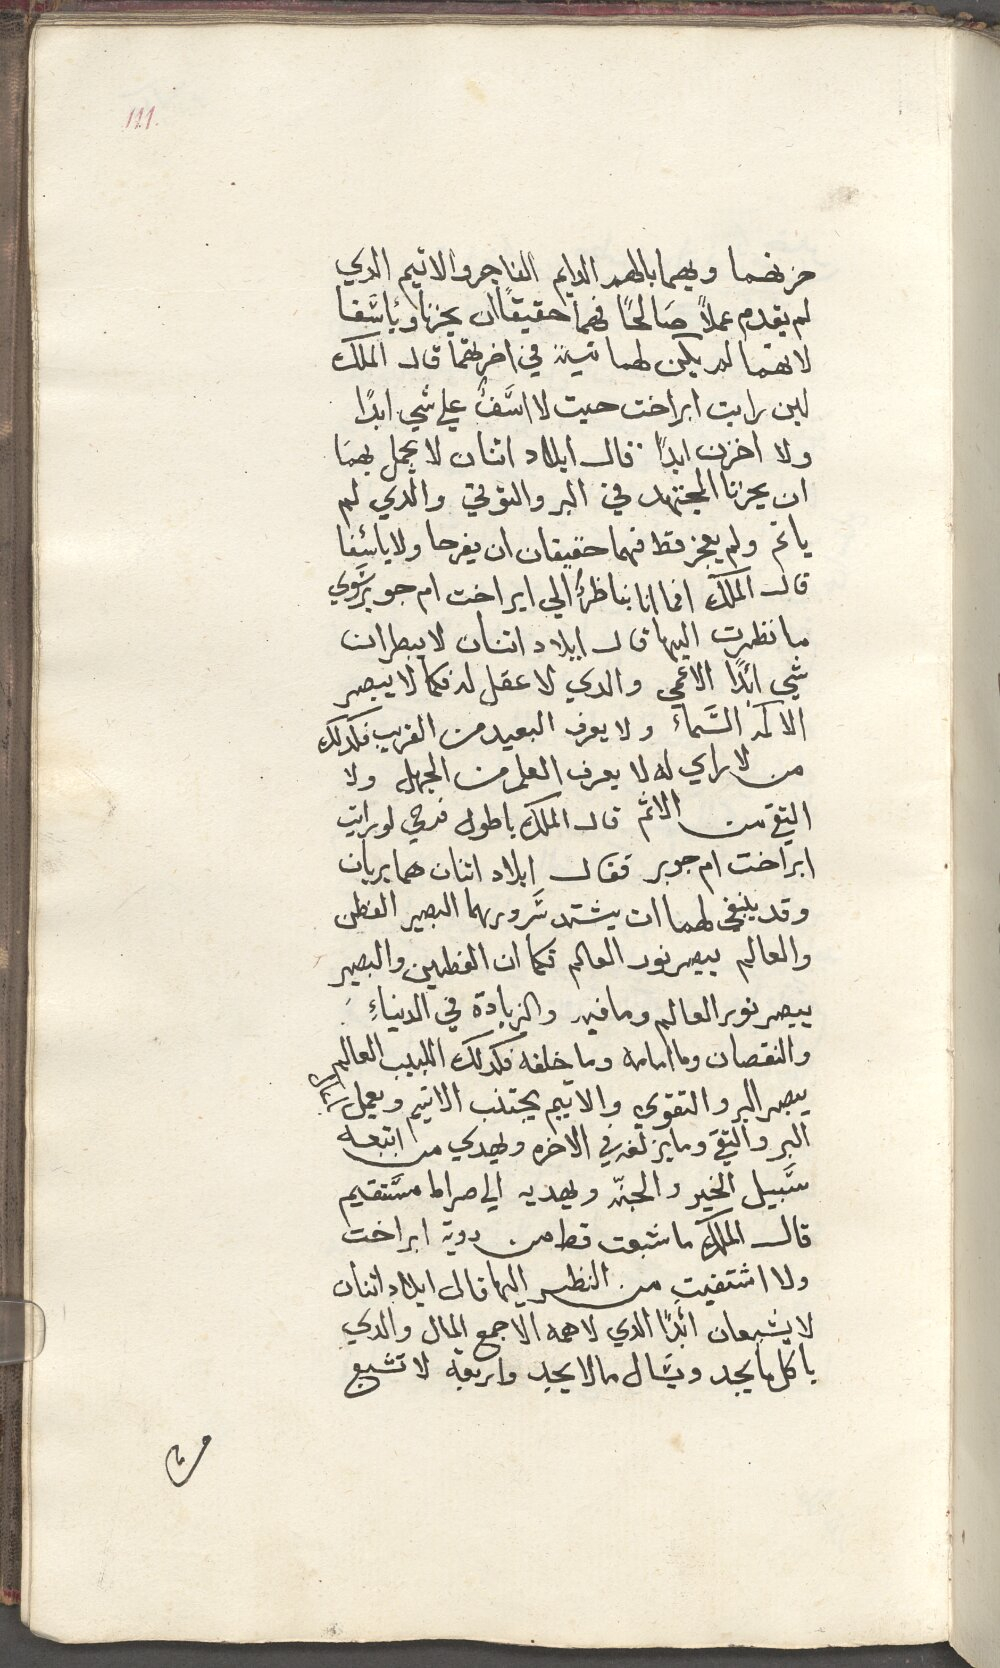 ١٢١
حزنهما ويهما بالهمر الدايم الفاجر والاتيم الدي
لم يقدم عملاً صَالحًا فهما حقيقًا ان يحزنا ويأسَّفا
لانهما لم يكن لهما تيىة في اخرتهما قال الملك
لين رايت ايراخت حيت لا اسَّفُ علي شي ابدًا
ولا احزن ابدًا قال ايلاد اتنان لا يجمل بهمَا
ان يحزنا المجتهد في البر والتوقي والدي لم
ياتم ولم يعجز قط فهما حقيقان ان يفرحا ولا يأسفا
قال الملك افما انا بناظرُ الي ايراخت ام جوبر شوي
ما نظرت اليها قال ايلاد اتنان لا يبطران
شي ابدًا الاعمي والدي لا عقل له فكما لا يبصر
الاكمه السَّماء ولا يعرف البعيد من القريب فكدلك
من لا راي له لا يعرف العلم من الجهل ولا
التقي من الاثم قال الملك يا طول فرحي لو رايت
ايراخت ام جوبر فقال ايلاد اتنان هما يريان
وقد ينبغي لهما ان يشتد سَّرورهما البصير الفطن
والعالم يبصر نور العالم تكما ان الفطين والبصير
يبصر نور العالم وما فيه والزيادة في الدنياءِ
والنقصان وما امامه وما خلفه فكدلك اللبيب العالم
يبصر البر والتقوي والاتيم يجتنب الاتيم ويعمل باعمال
البر والتقي وما يزلفه في الاخره ويهدي من اتبعه
سَّبيل الخير والجنّه ويهديه الي صراط مسَّتقيم
قال الملك ما شبعت قط من روية ايراخت
ولا اشتفيت من النظر اليها قال ايلاد اتنان
لا يشبعان ابدًا الدي لا همه الا جمع المال والدي
ياكل ما يجد ويسَّال ما لا يجد واربعة لا تشبع